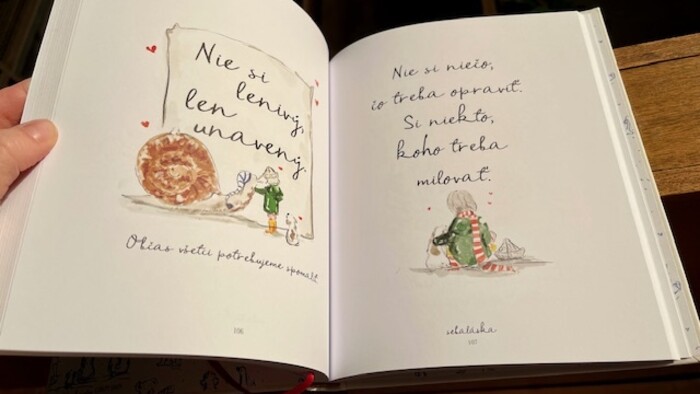 Nie si
lenivý,
len
unavený.
Občas všetci potrebujeme spomaliť.
106
Nie si niečo,
čo treba opraviť.
Si niekto,
koho treba
milovať.
sebaláska
107